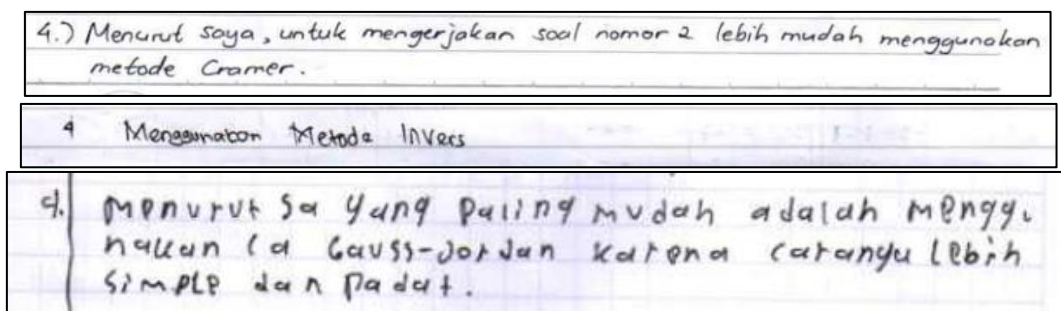 4.) Menurut saya, untuk mengerjakan soal nomor 2 lebih mudah menggunakan
metode Cramer.
4 Menggunakan Metode Invers
4. menurut Sa yang paling mudah adalah menggu
nakan Ca Gauss-Jordan karena caranya lebih
simple dan padat.